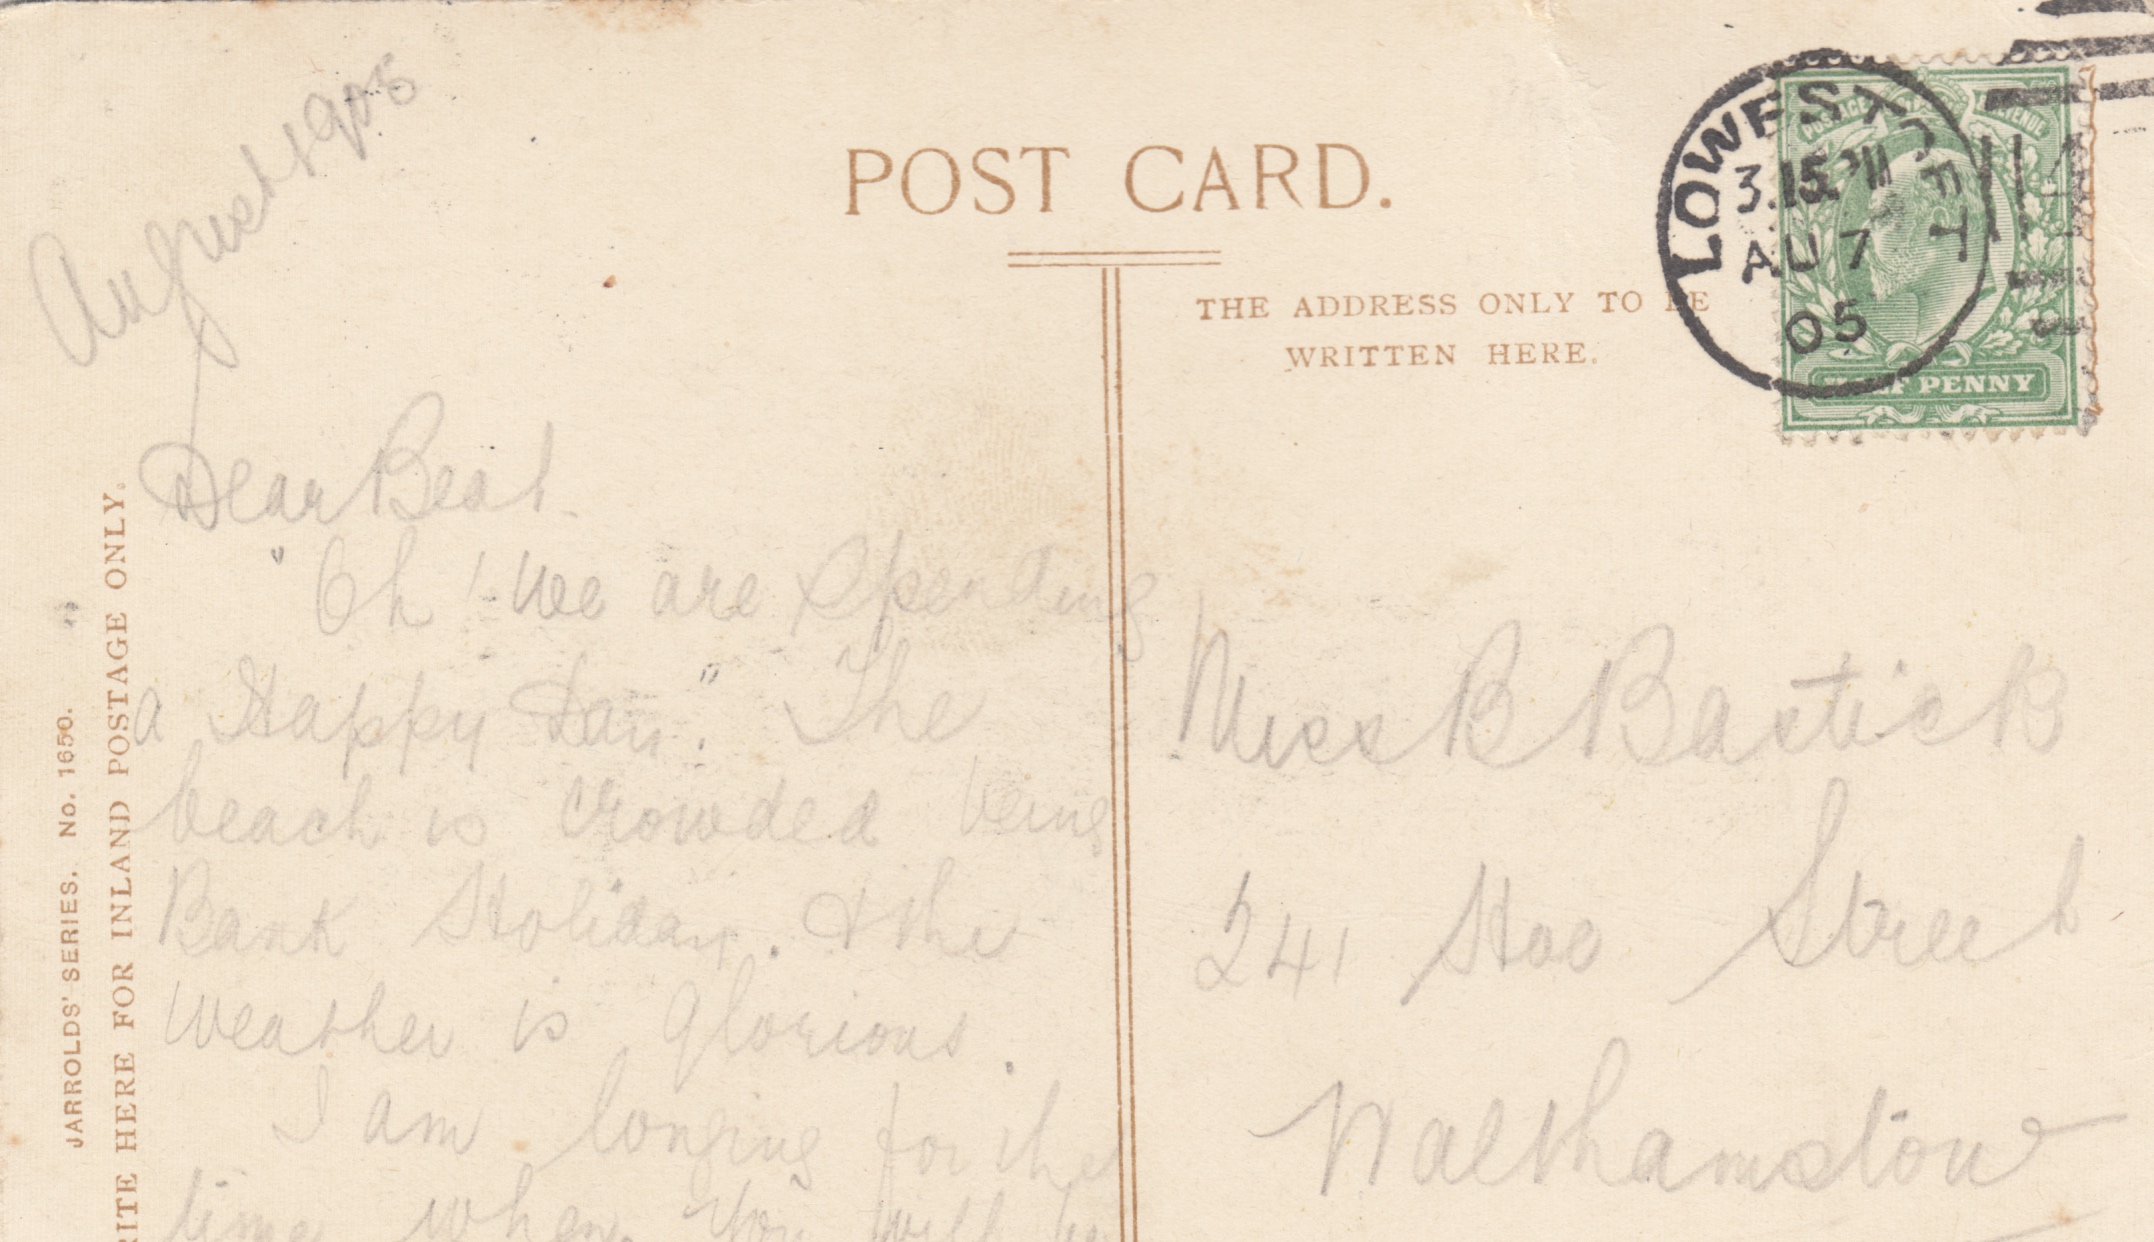 August 1905
POST CARD.
THE ADDRESS ONLY TO BE
WRITTEN HERE.
LOWESTOFT
3.15 PM
AU 7
05
POSTAGE REVENUE
HALF PENNY
JARROLDS' SERIES. No. 1650.
RITE HERE FOR INLAND POSTAGE ONLY.
Dear Beat
"Oh! We are Spending
a Happy Day." The
beach is crowded being
Bank Holiday. & the
weather is glorious.
I am longing for the
time when you will be
Miss B Bastick
241 Hoe Street
Walthamstow